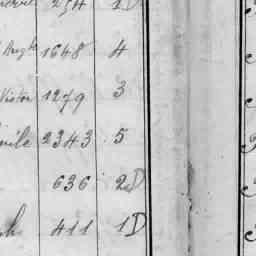 254 1D
Hugh 1648 4
Victor 1279 3
ville 2343 5
636 2D
411 1D